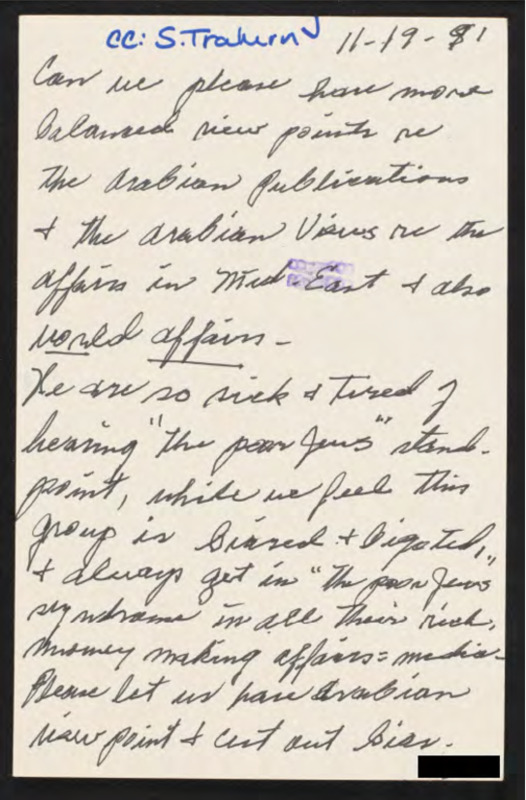 cc: S. Trahern 11-19-81
Can we please have more
balanced view points re
the Arabian Publications
& the Arabian Views re the
affairs in Mid-East & also
world affairs -
We are so sick & tired of
hearing "the poor Jews" stand-
point, while we feel this
group is biased & bigoted,
& always get in "the poor Jews"
syndrome in all their rich,
money making affairs = media -
Please let us have Arabian
view point & cut out bias.